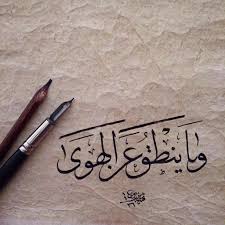 وما ينطق عن الهوى